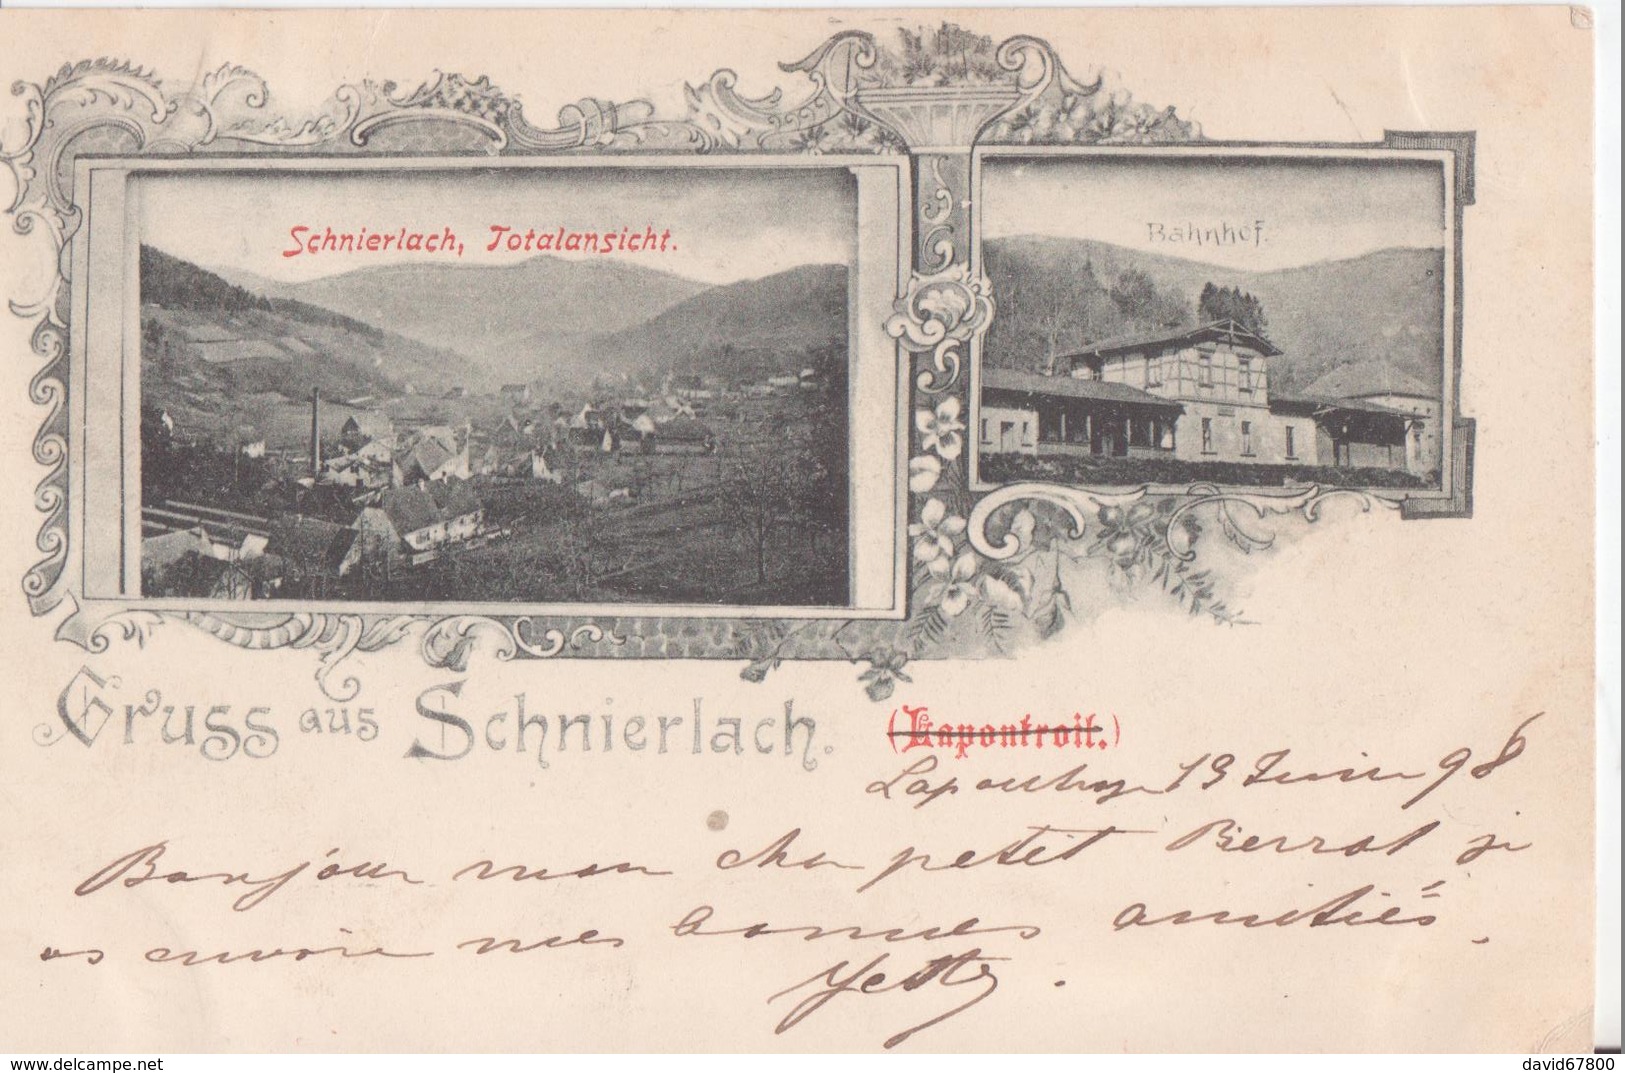 Schnierlach, Totalansicht.
Bahnhof.
Gruss aus Schnierlach.
(Lapontroit.)
19 Juin 98
Bonjour mon cher petit Pierrot je
vs envoie mes bonnes amitiés.
Yetty.
www.delcampe.net
david67800